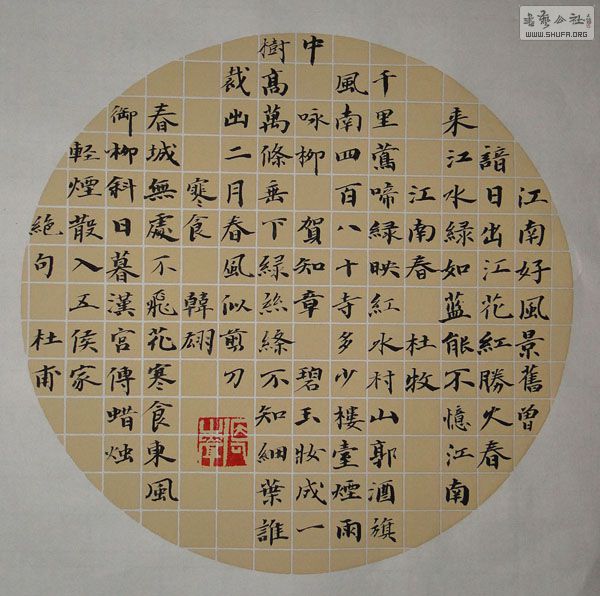 江南好風景舊曾
諳日出江花紅勝火春
来江水緑如藍能不憶江南
江南春 杜牧
千里鶯啼緑映紅水村山郭酒旗
風南四百八十寺多少樓臺煙雨
中 咏柳 賀知章 碧玉妝成一
樹高萬條垂下緑絲絛不知細葉誰
裁出二月春風似剪刀
寒食 韓翃
春城無處不飛花寒食東風
御柳斜日暮漢宮傳蜡烛
輕煙散入五侯家
絕句 杜甫
WWW.SHUFA.ORG